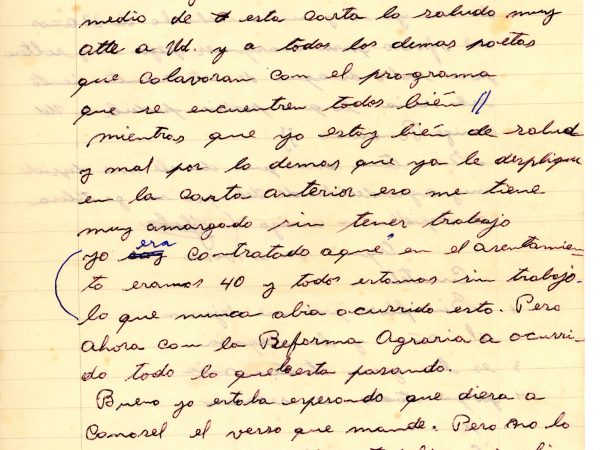 medio de esta carta lo saludo muy
atte a Ud. y a todos los demas poetas
que colavoran con el programa
que se encuentren todos bién //
mientras que yo estoy bién de salud
y mal por lo demas que ya le desplique
en la carta anterior eso me tiene
muy amargado sin tener trabajo
yo era contratado aqui en el asentamien-
to eramos 40 y todos estamos sin trabajo.
lo que nunca abia ocurrido esto. Pero
ahora con la Reforma Agraria a ocurri-
do todo lo que lo esta pasando.
Bueno yo estaba esperando que diera a
Conocel el verso que mande. Pero no lo